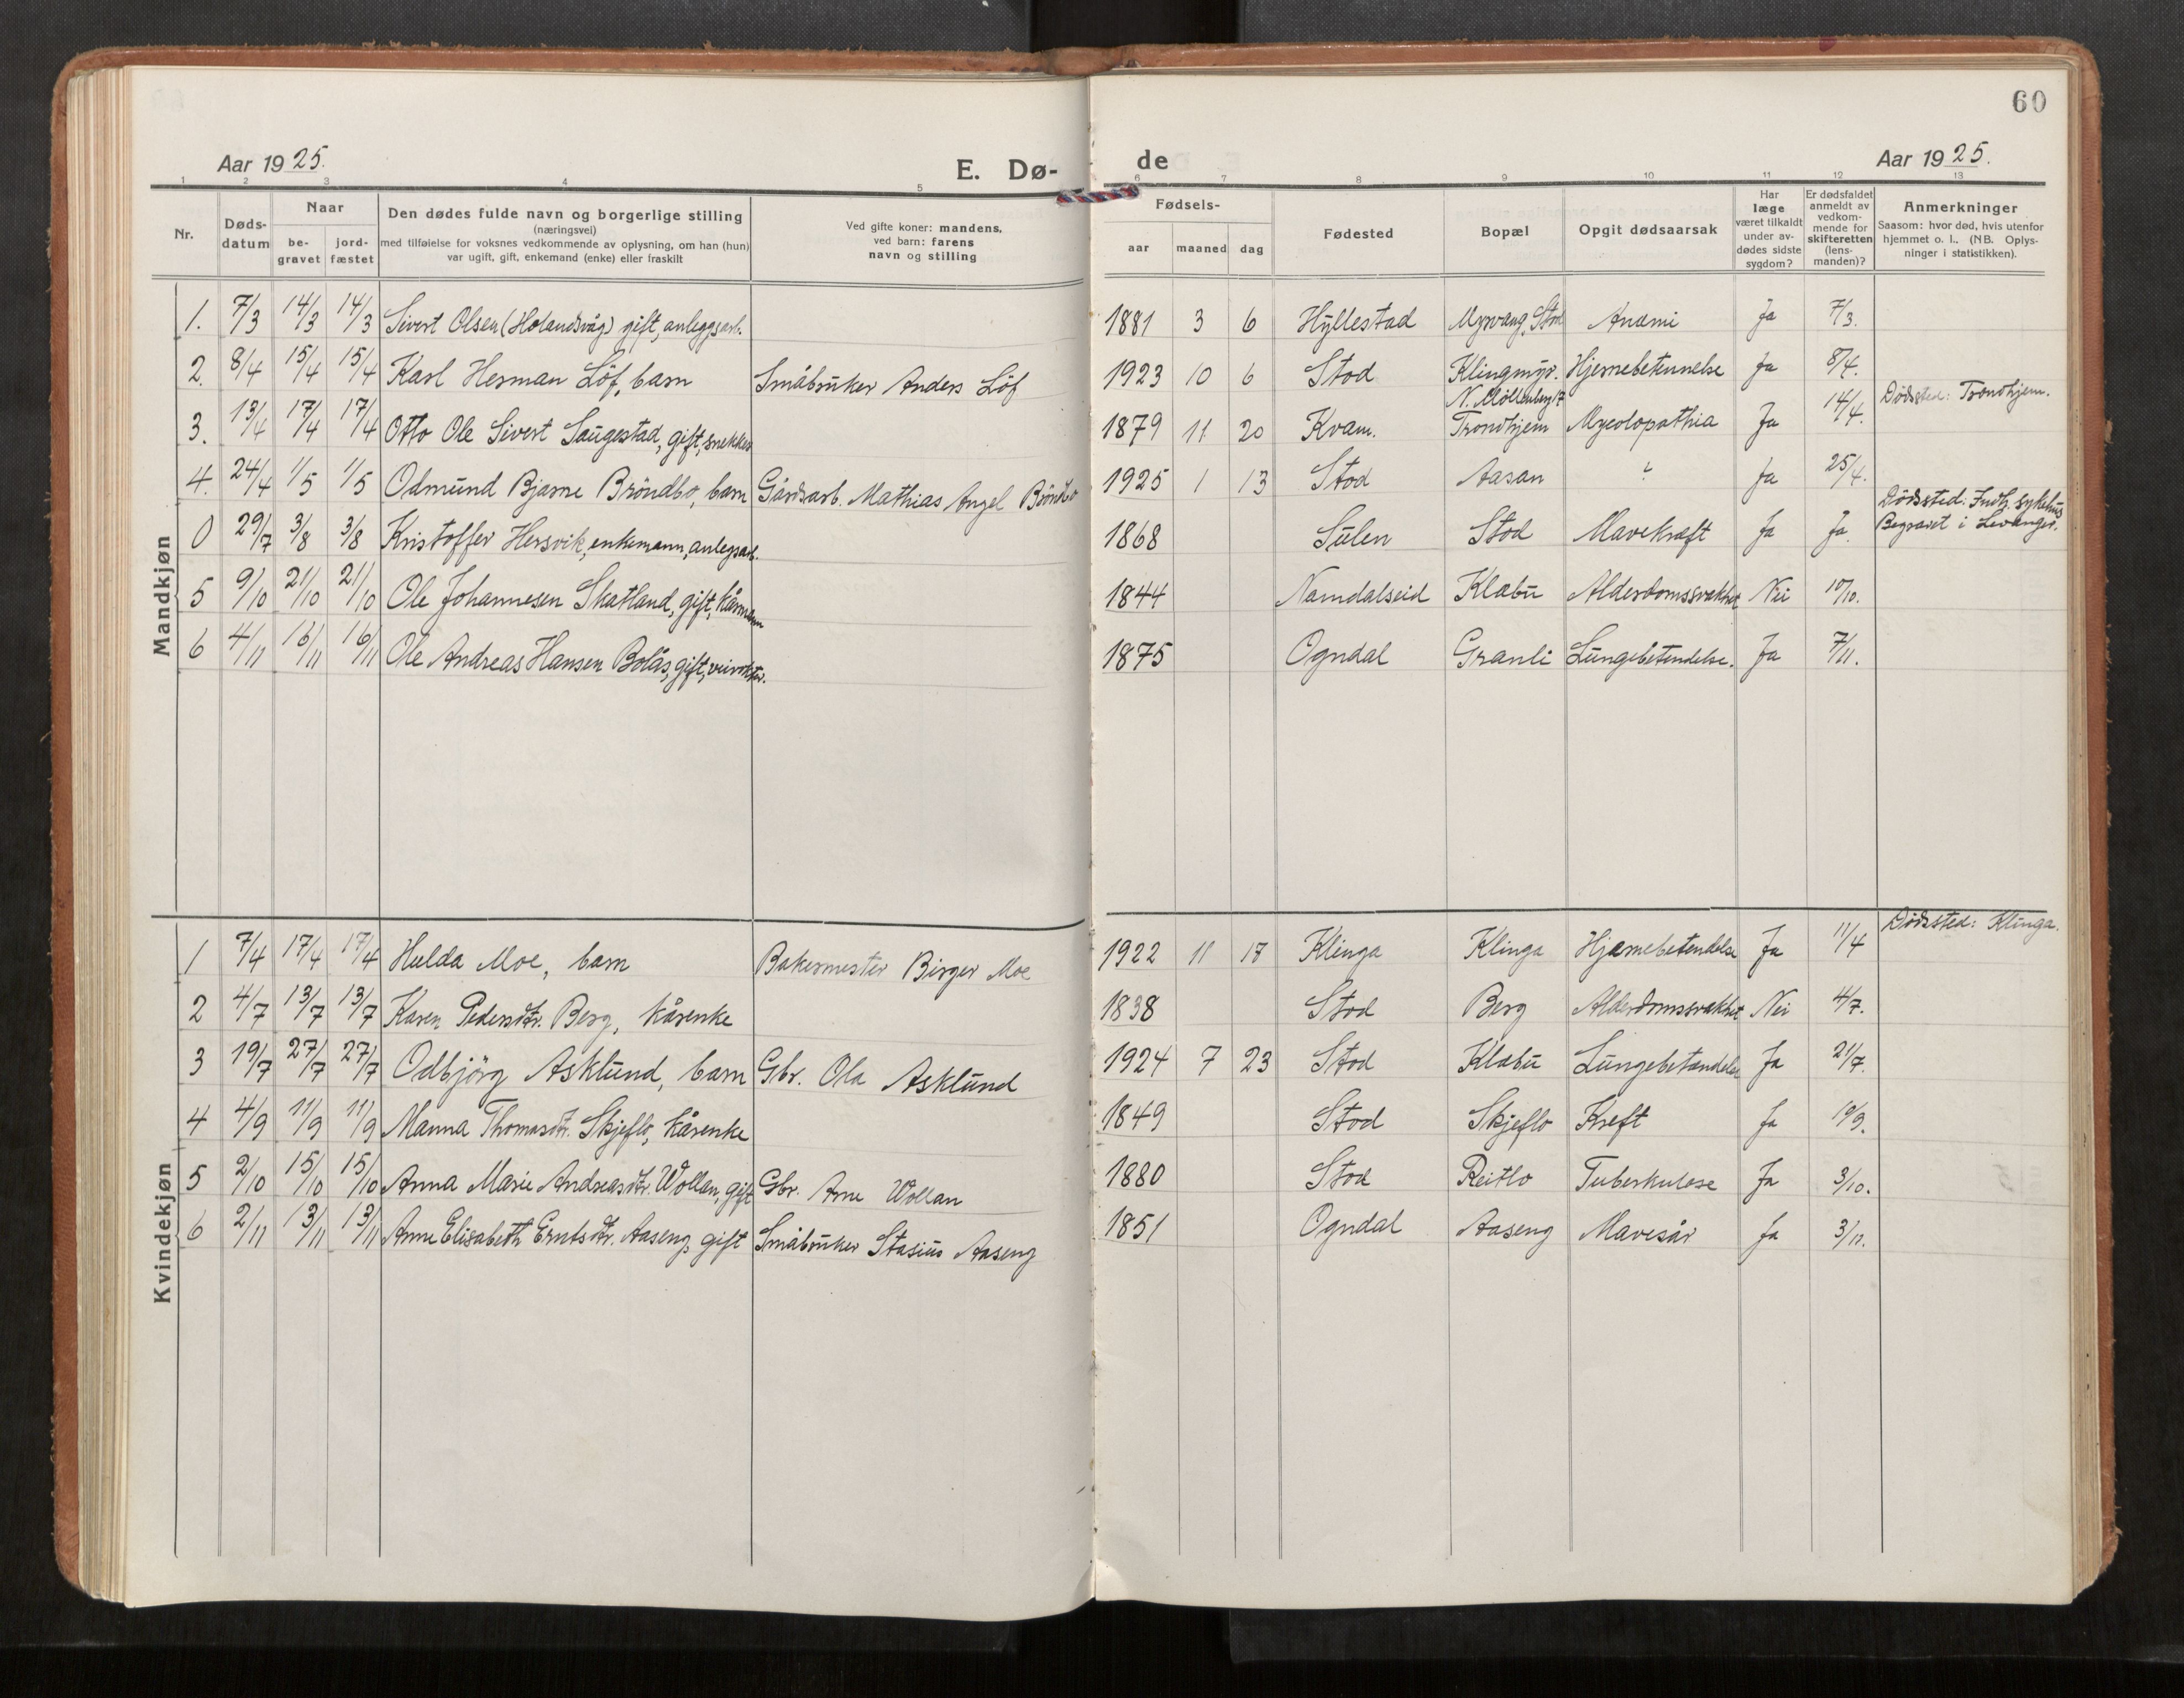 60
Aar 1925.
E. Dø-
de
Aar 1925.
1 2 3 4 5 6 7 8 9 10 11 12 13
Nr.
Døds-
datum
Naar
be-
gravet
jord-
fæstet
Den dødes fulde navn og borgerlige stilling
(næringsvei)
med tilføielse for voksnes vedkommende av oplysning, om han (hun)
var ugift, gift, enkemand (enke) eller fraskilt
Ved gifte koner: mandens,
ved barn: farens
navn og stilling
Fødsels-
aar maaned dag
Fødested
Bopæl
Opgit dødsaarsak
Har
læge
været tilkaldt
under av-
dødes sidste
sygdom?
Er dødsfaldet
anmeldt av
vedkom-
mende for
skifteretten
(lens-
manden)?
Anmerkninger
Saasom: hvor død, hvis utenfor
hjemmet o. l.. (NB. Oplys-
ninger i statistikken).
Mandkjøn
1. 7/3 14/3 14/3 Sivert Olsen (Holandsvåg) gift, anleggsarb. 1881 3 6 Hyllestad Myrvang, Stod Anæmi Ja 7/3.
2. 8/4 15/4 15/4 Karl Herman Löf, barn Småbruker Anders Löf 1923 10 6 Stod Klingmyr. Hjernebetennelse Ja 8/4.
N. Möllenberg 17 Dødsted: Trondhjem.
3. 13/4 17/4 17/4 Otto Ole Sivert Saugestad, gift, snekker 1879 11 20 Kvam. Trondhjem Myeolopathia Ja 14/4.
4. 24/4 1/5 1/5 Odmund Bjarne Bröndbo, barn Gårdsarb. Mathias Angel Bröndbo 1925 1 13 Stod Aasan ? Ja 25/4.
Dødssted: Indh. sykehus
0 29/7 3/8 3/8 Kristoffer Hersvik, enkemann, anlegsarb. 1868 Sulen Stod Mavekræft Ja Ja. Begravet i Levanger.
5 9/10 21/10 21/10 Ole Johannesen Skatland, gift, kårmann 1844 Namdalseid Klæbu Alderdomssvakhet Nei 10/10.
6 4/11 16/11 16/11 Ole Andreas Hansen Bolås, gift, veivokter. 1875 Ogndal Granli Lungebetendelse. Ja 7/11.
Kvindekjøn
Dødssted: Klinga.
1 7/4 17/4 17/4 Hulda Moe, barn Bakermester Birger Moe 1922 11 17 Klinga Klinga Hjærnebetendelse Ja 11/4
2 4/7 13/7 13/7 Karen Pedersdtr. Berg, kårenke 1838 Stod Berg Alderdomssvakhet Nei 4/7.
3 19/7 27/7 27/7 Odbjörg Asklund, barn Gbr. Ola Asklund 1924 7 23 Stod Klæbu Lungebetændelse Ja 21/7.
4 4/9 11/9 11/9 Manna Thomasdtr. Skjeflo, kårenke 1849 Stod Skjeflo Kreft Ja 10/9.
5 2/10 15/10 15/10 Anna Marie Andreasdtr. Wollan, gift Gbr. Arne Wollan 1880 Stod Reitlo Tuberkulose Ja 3/10.
6 2/11 13/11 13/11 Anne Elisabeth Erntsdtr. Aaseng, gift Småbruker Stasius Aaseng 1851 Ogndal Aaseng Mavesår Ja 3/11.